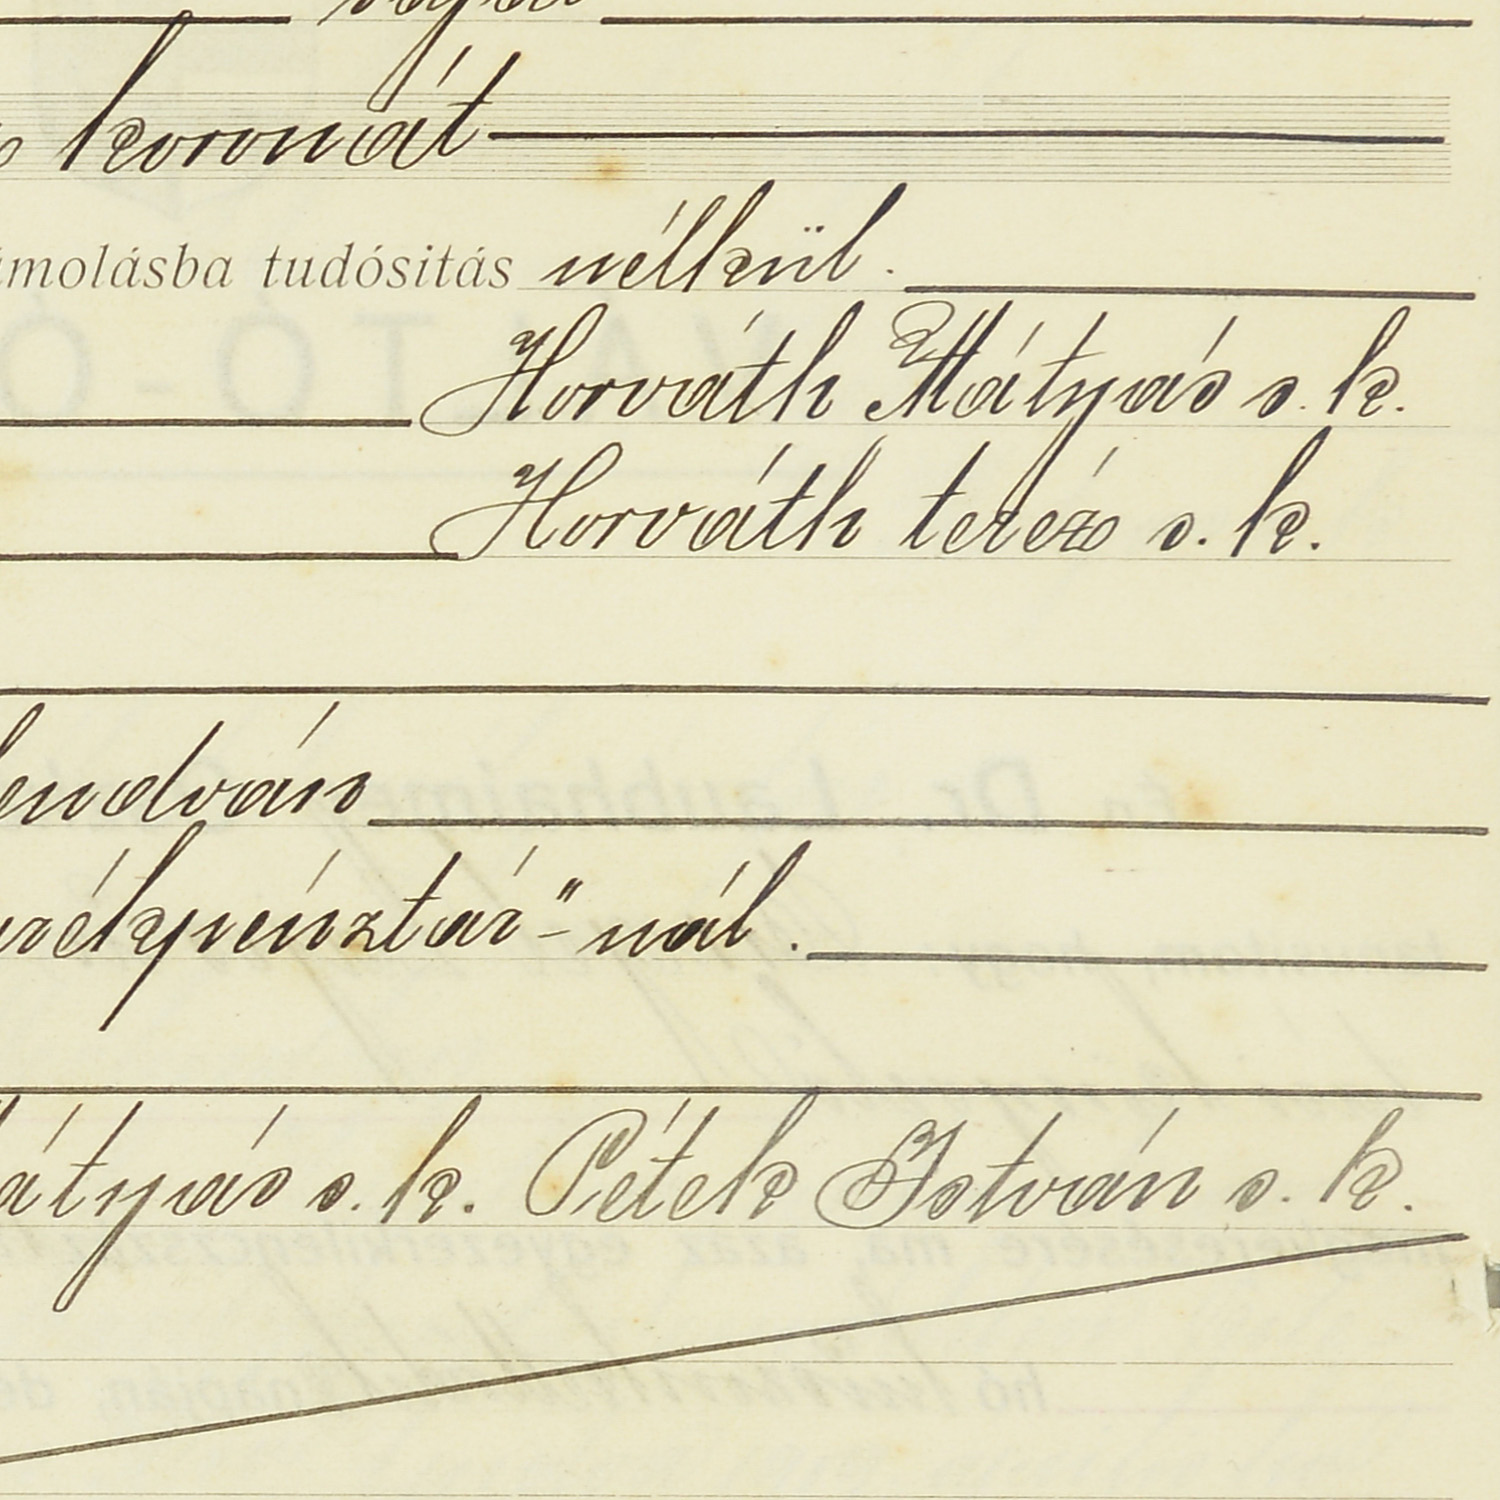 koronát
ámolásba tudósitás nélkül.
Horváth Mátyás s. k.
Horváth teréz s. k.
lendván
rékpénztár"-nál.
Mátyás s. k. Pétek István s. k.